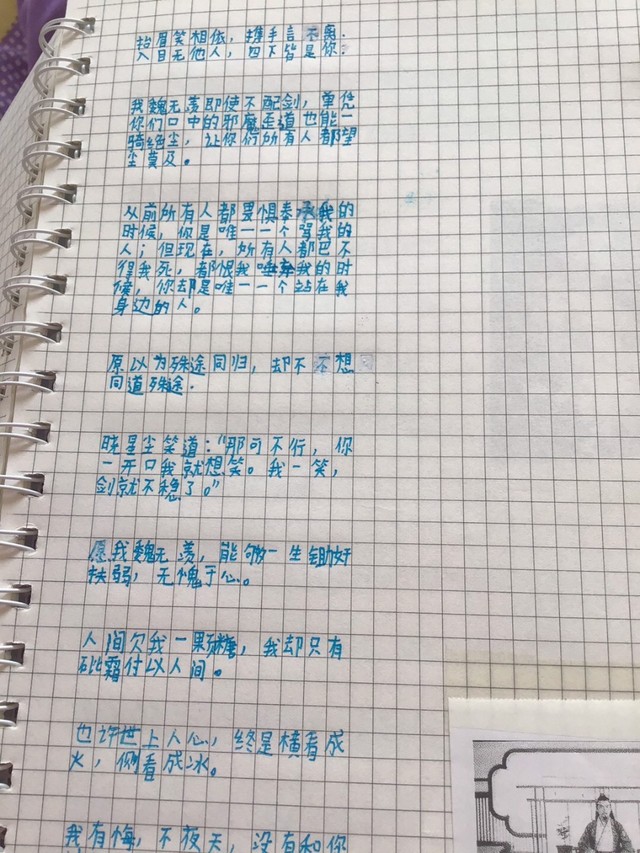 抬眉笑相依，携手言不离.
入目无他人，四下皆是你.
我魏无羡即使不配剑，单凭
你们口中的邪魔歪道也能一
骑绝尘，让你们所有人都望
尘莫及。
从前所有人都畏惧奉承我的
时候，你是唯一一个骂我的
人；但现在，所有人都巴不
得我死，都恨我唾弃我的时
候，你却是唯一一个站在我
身边的人。
原以为殊途同归，却不 不想
同道殊途.
晓星尘笑道：“那可不行，你
一开口我就想笑。我一笑，
剑就不稳了。”
愿我魏无羡，能够一生锄奸
扶弱，无愧于心。
人间欠我一颗糖，我却只有
砒霜付以人间。
也许世上人心，终是横看成
火，侧看成冰。
我有悔，不夜天，没有和你